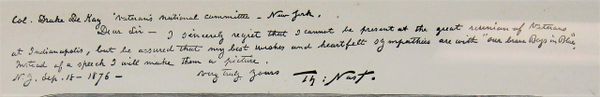 Col. Drake De Kay Vetrans National Committee - New York.
Dear Sir - I sincerely regret that I cannot be present at the great reunion of Vetrans
at Indianapolis, but be assured that my best wishes and heartfelt sympathies are with "our brave Boys in Blue",
Instead of a speech I will make them a picture.
N.J. Sep. 18 - 1876 - Very truly yours Th: Nast.